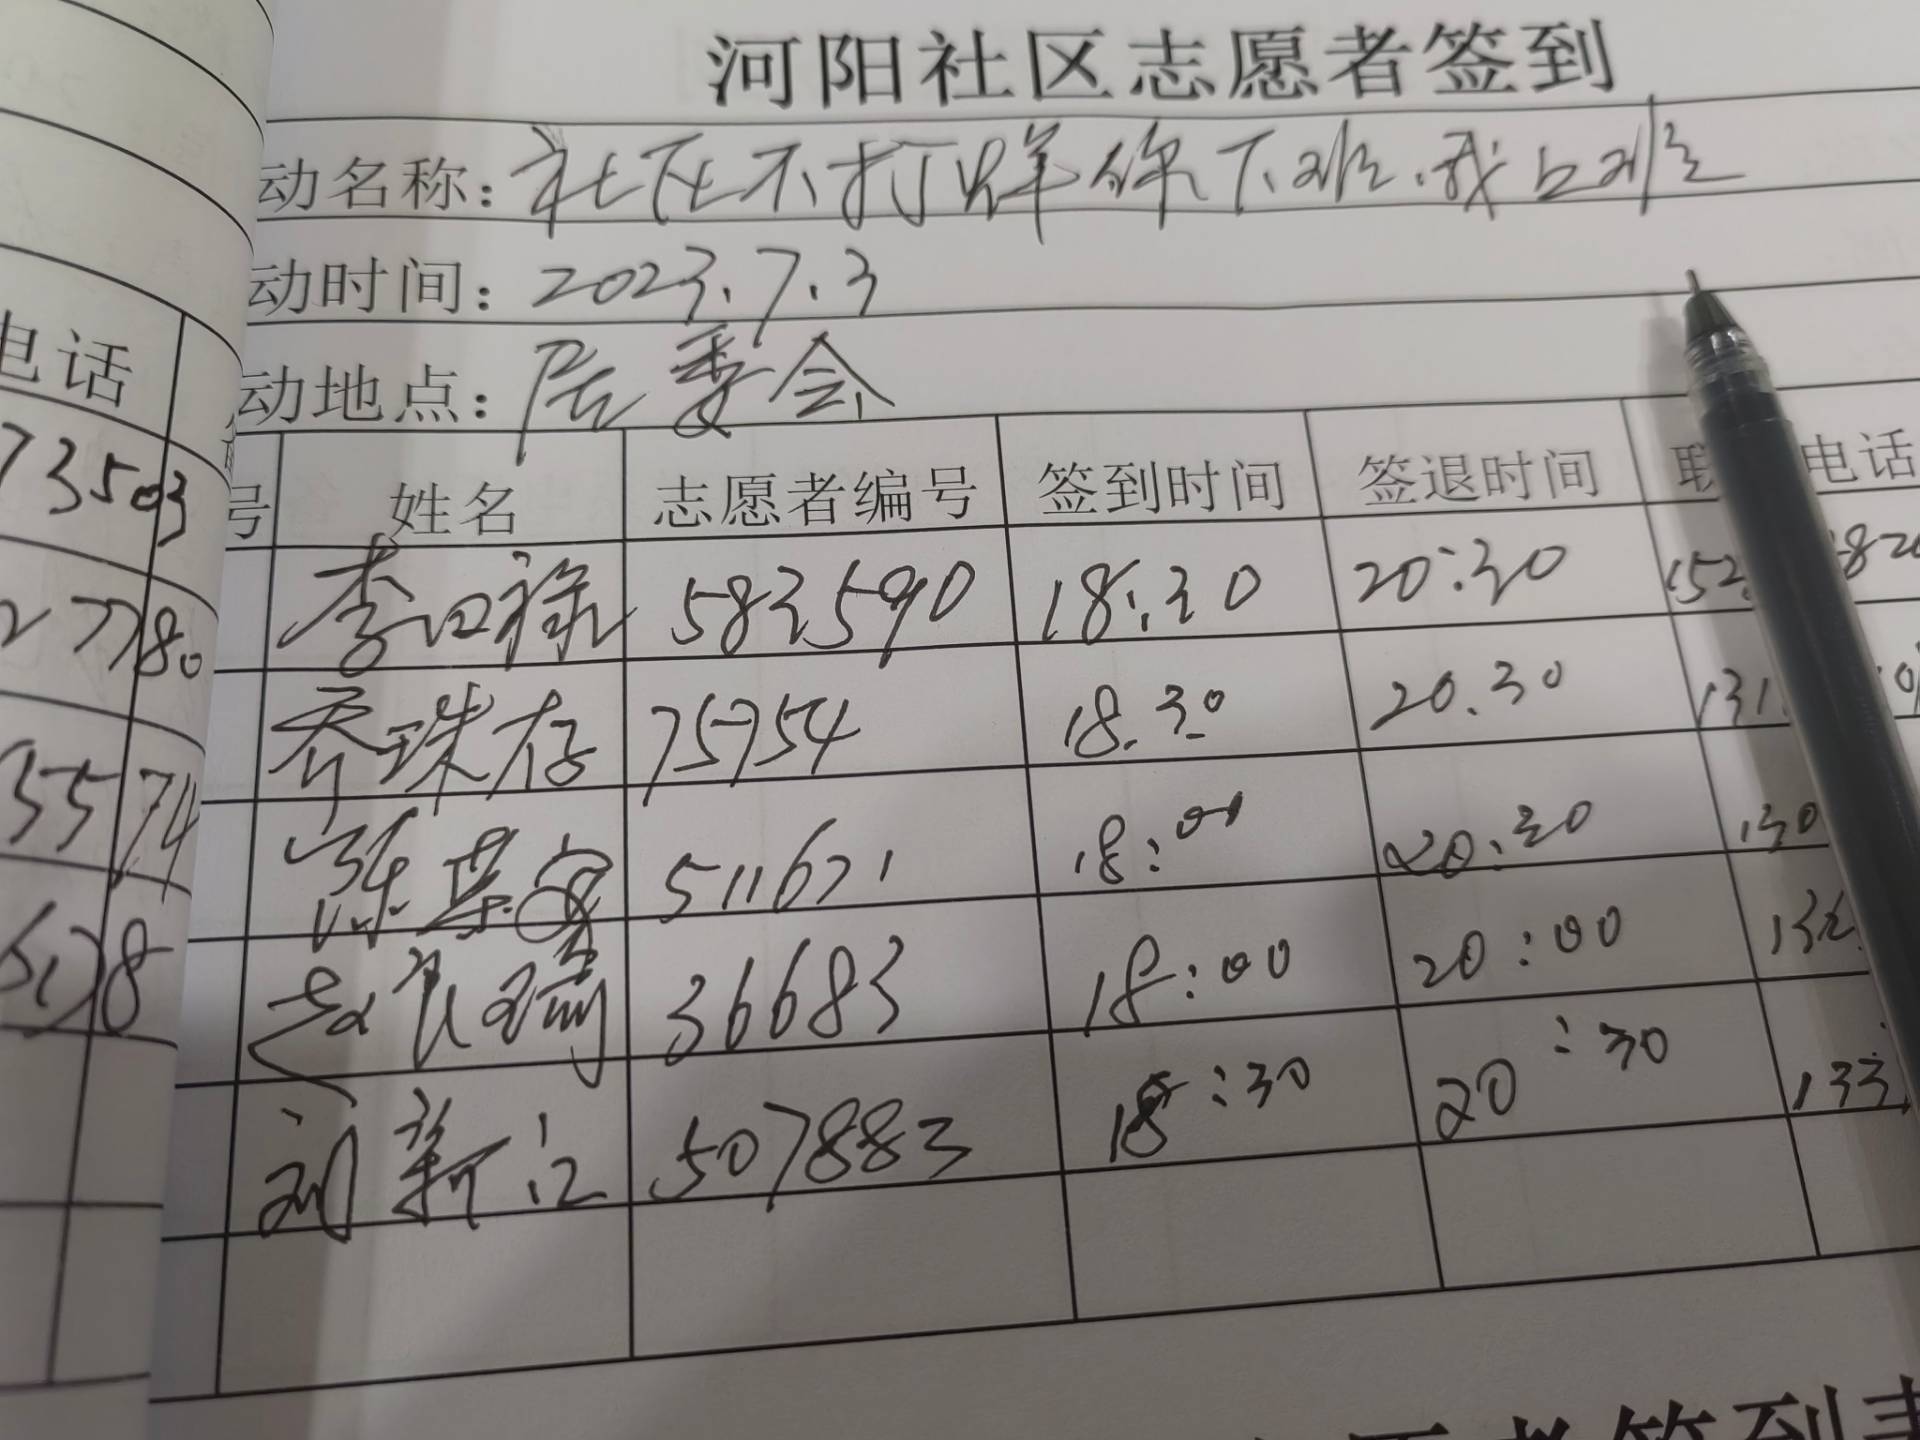 河阳社区志愿者签到
动名称：社区不打烊你下班.我上班
动时间：2023.7.3
动地点：居委会
电话
号 姓名 志愿者编号 签到时间 签退时间 联 电话
73503
李日禄 583590 18:30 20:30 152 820
27780
乔珠存 75754 18.30 20.30 131
3574
陈 511671 18:00 20:30 130
赵良瑞 36683 18:00 20:00 132
刘新江 507883 18:30 20:30 133
签到表